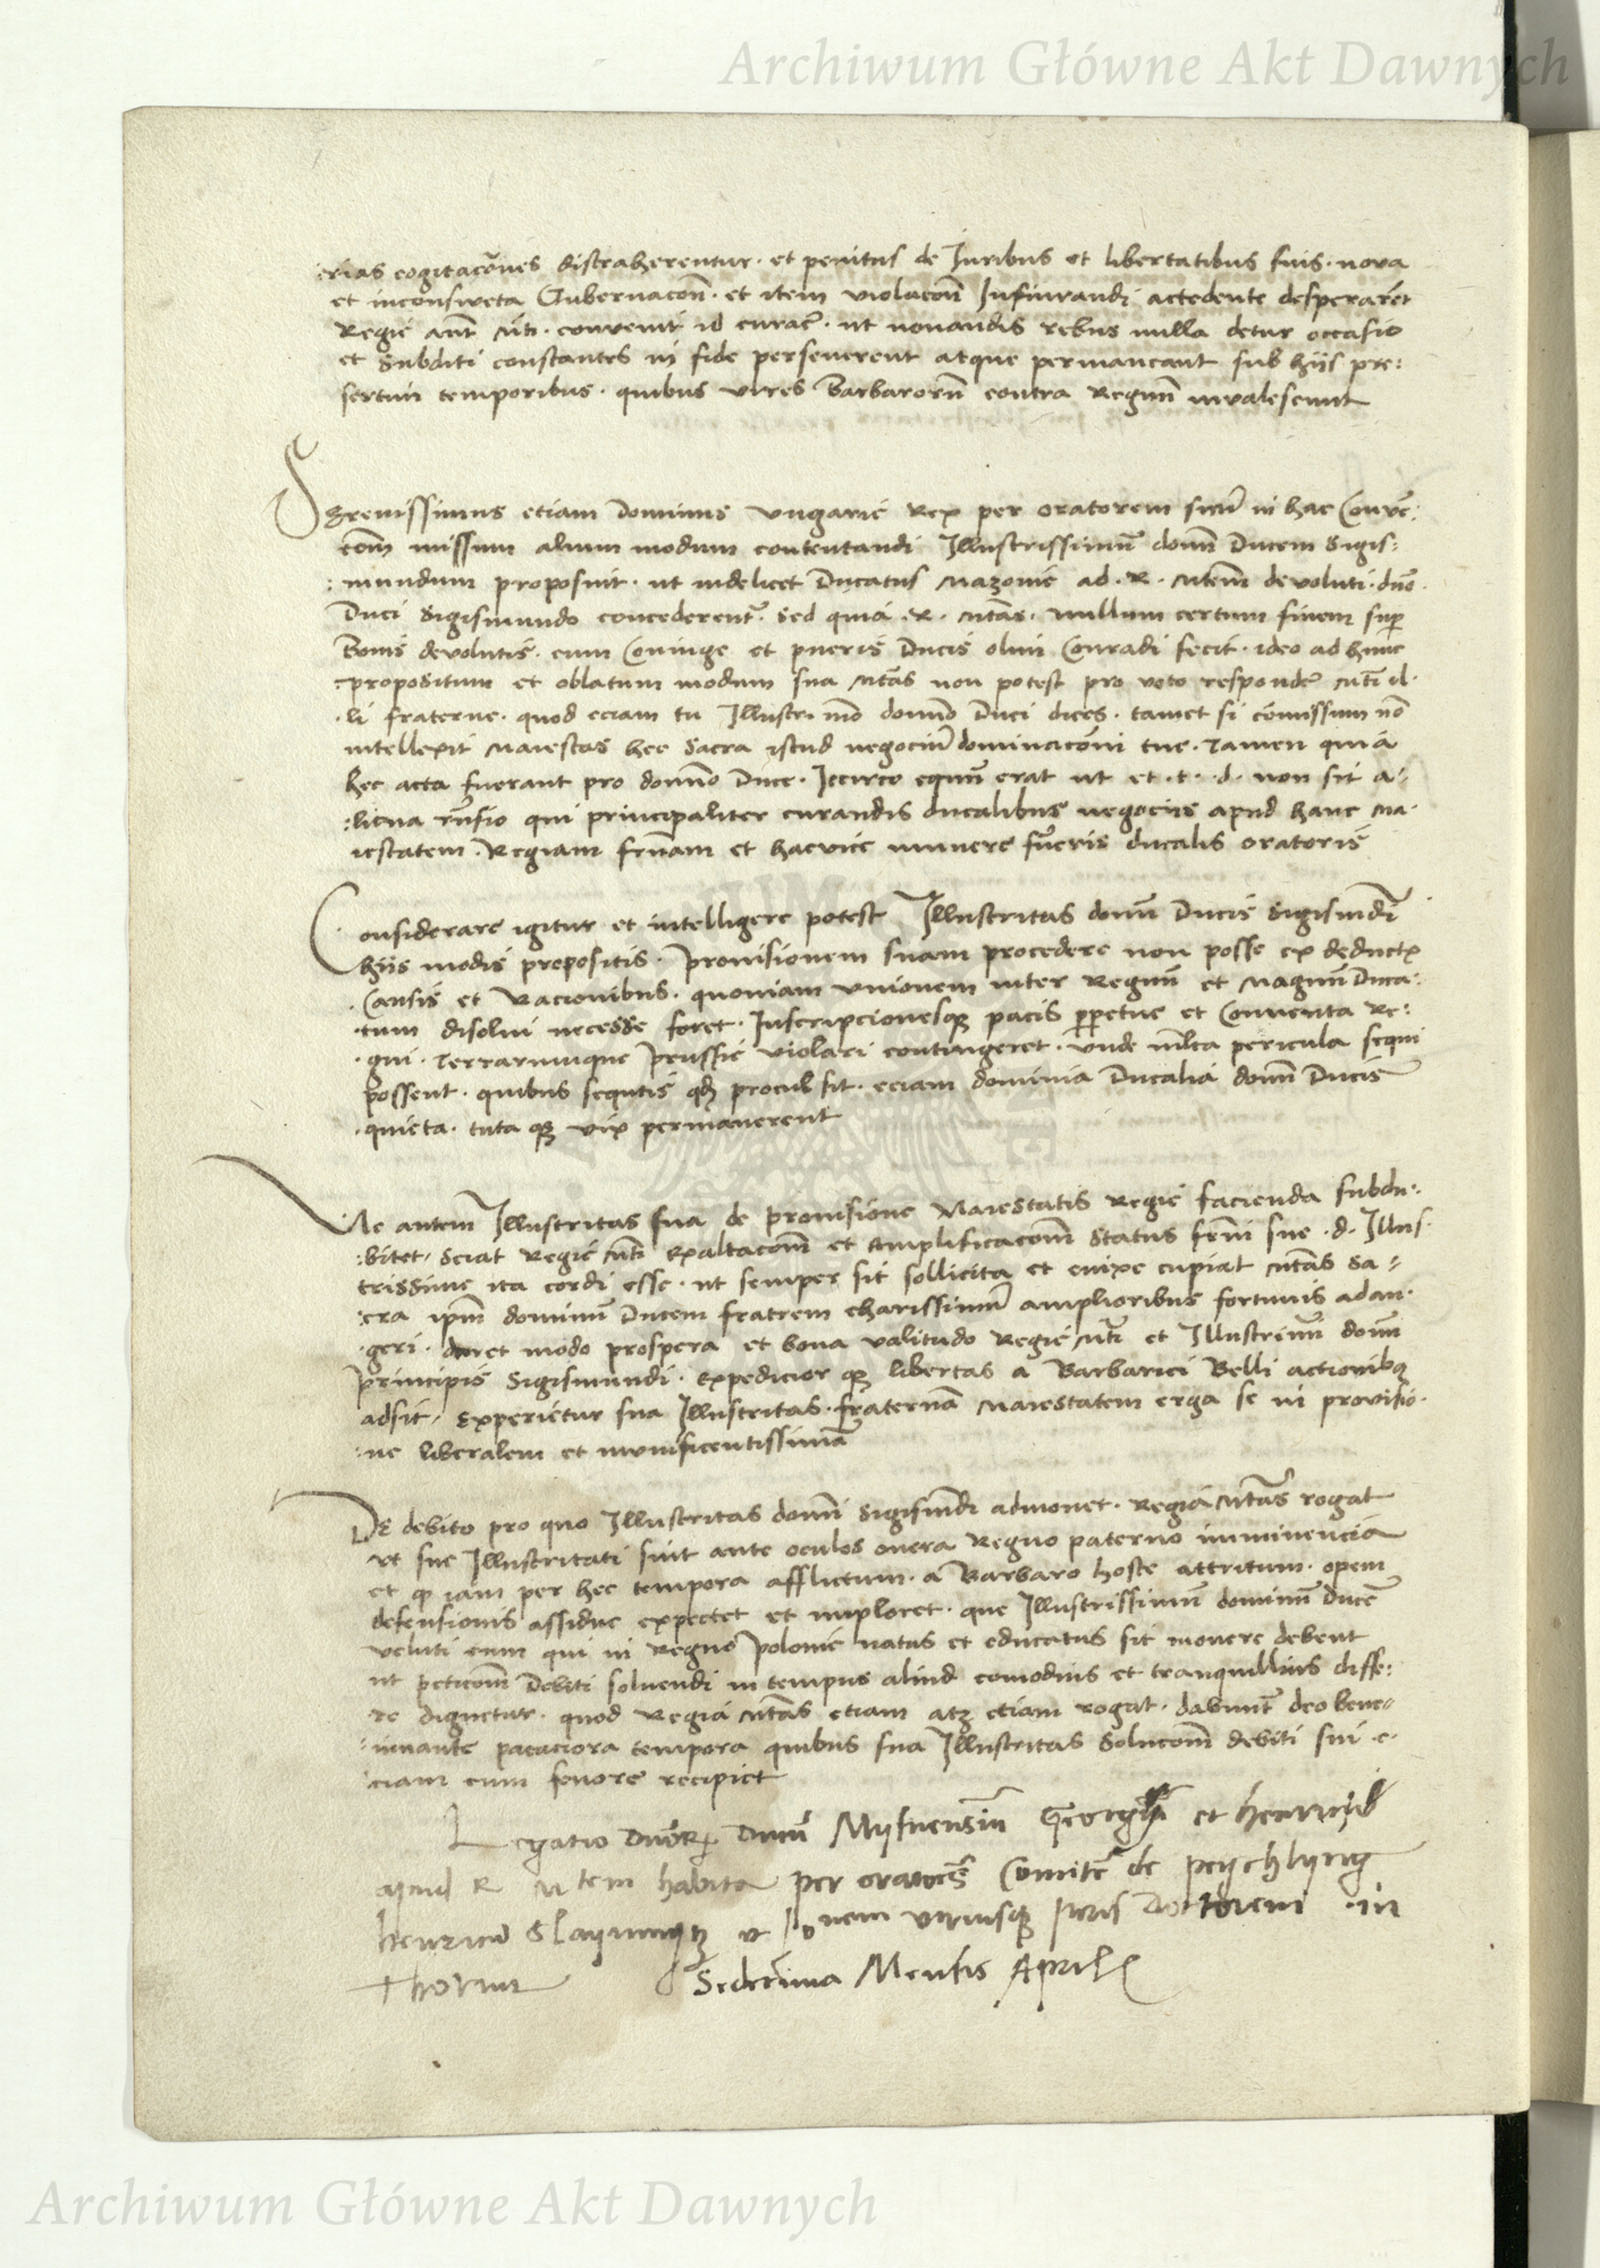 Archiwum Główne Akt Dawnych
erias cogitacões distraherentur · et penitus de Juribus et libertatibus suis · nova
et inconsweta Gubernacoñ · et item violacoñ Jusiurandi actedente desperarēt
Regie aũt mti · convenit id curar̃ · ut novandis rebus nulla detur occasio
et Subditi constantes in fide perseverent atque permaneant sub hijs pre:
sertim temporibus · quibus vires Barbarorũ contra Regnũ invalescunt
Serenissimus etiam dominus Vngarie Rex per oratorem suũ in hac Convẽ:
cõem missum alium modum contentandi Illustrissimũ domñ Ducem Sigis:
:mundum proposuit · ut videlicet Ducatus Mazovie ad · R · Mtem devoluti · dño
Duci Sigismundo concederent̃ · Sed quia · R · Mtas · nullum certum finem sup̃
Bonis devolutis · cum Coniuge et pueris Ducis olim Conradi fecit · ideo ad hunc
:propositum et oblatum modum sua Mtas non potest pro voto respondeř Mti il·
·li fraterne · quod eciam tu Illustr · mo domño Duci dices · tamet si cõmissum nõ
intellexit Maiestas hec Sacra istud negociũ dominacõni tue · Tamen quia
hec acta fuerant pro domño Duce · Iccirco equũ erat ut et · t · d · non sit a:
:liena rñsio qui principaliter curandis ducalibus negociis apud hanc Ma·
iestatem · Regiam frñam et hacvice munere fũeris ducalis oratoris
Considerare igitur et intelligere potest Illustritas domñ Ducis Sigismdi
hijs modis prepositis · Provisionem suam procedere non posse ex deductis
·Causis et Racionibus · quoniam Vnionem inter Regnũ et Magnũ Duca·
·tum disolvi necesse foret · Inscripcionesqꝫ pacis ꝑpetue et Conventa Re:
·gni · Terrarumque Prussie violari contingeret · Vnde mlta pericula sequi
possent · quibus sequtis qđ procul sit · eciam dominia Ducalia domñ Ducis
·quieta · tuta qꝫ vix permanerent
Ne autem Illustritas sua de provisione Maiestatis Regie facienda subdu:
:bitet · Sciat Regie Mti exaltacõem et Amplificacõem Status frñi sue · d · Illus·
trissime ita cordi esse · ut semper sit sollicita et enixe cupiat Mtas Sa:
:cra ipm dominũ Ducem fratrem charissimũ amplioribus fortunis adau·
·geri · duret modo prospera et bona valitudo Regie Mti et Illustrimi domñ
Principis Sigismundi · Expedicior qꝫ libertas a Barbarici Belli actionibꝫ
adsit · Experietur sua Illustritas · fraternã Maiestatem erga se in provisio·
:ne liberalem et munificentissimã
DE debito pro quo Illustritas domñi Sigismdi admonet · Regia Mtas rogat
ut sue Illustritati sint ante oculos onera Regno paterno imminencia
et ꝙ iam per hec tempora afflictum · a Barbaro hoste attritum · opem
defensionis assidue expectet et imploret · que Illustrissimũ dominũ Ducẽ
veluti eum qui in Regno Polonie natus et educatus sit movere debent
ut peticoem Debiti solvendi in tempus aliud comodius et tranquillius diffe:
·re dignetur · quod Regia Mtas etiam atqꝫ etiam rogat · dabunt̃ deo bene:
:iuvante pacaciora tempora quibus sua Illustritas Solucoem debiti sui · e·
:ciam cum fenore recipiet
Legatio Duoꝝ Ducũ Mysnensiũ Georgii et henrici
apud R Mtem habita per oratores Comitẽ de peychlyng
henricũ Slaynnytz et uem vtriusqꝫ Juris Doctorem in
Thorun Sedecima Mensis Aprilis
Archiwum Główne Akt Dawnych